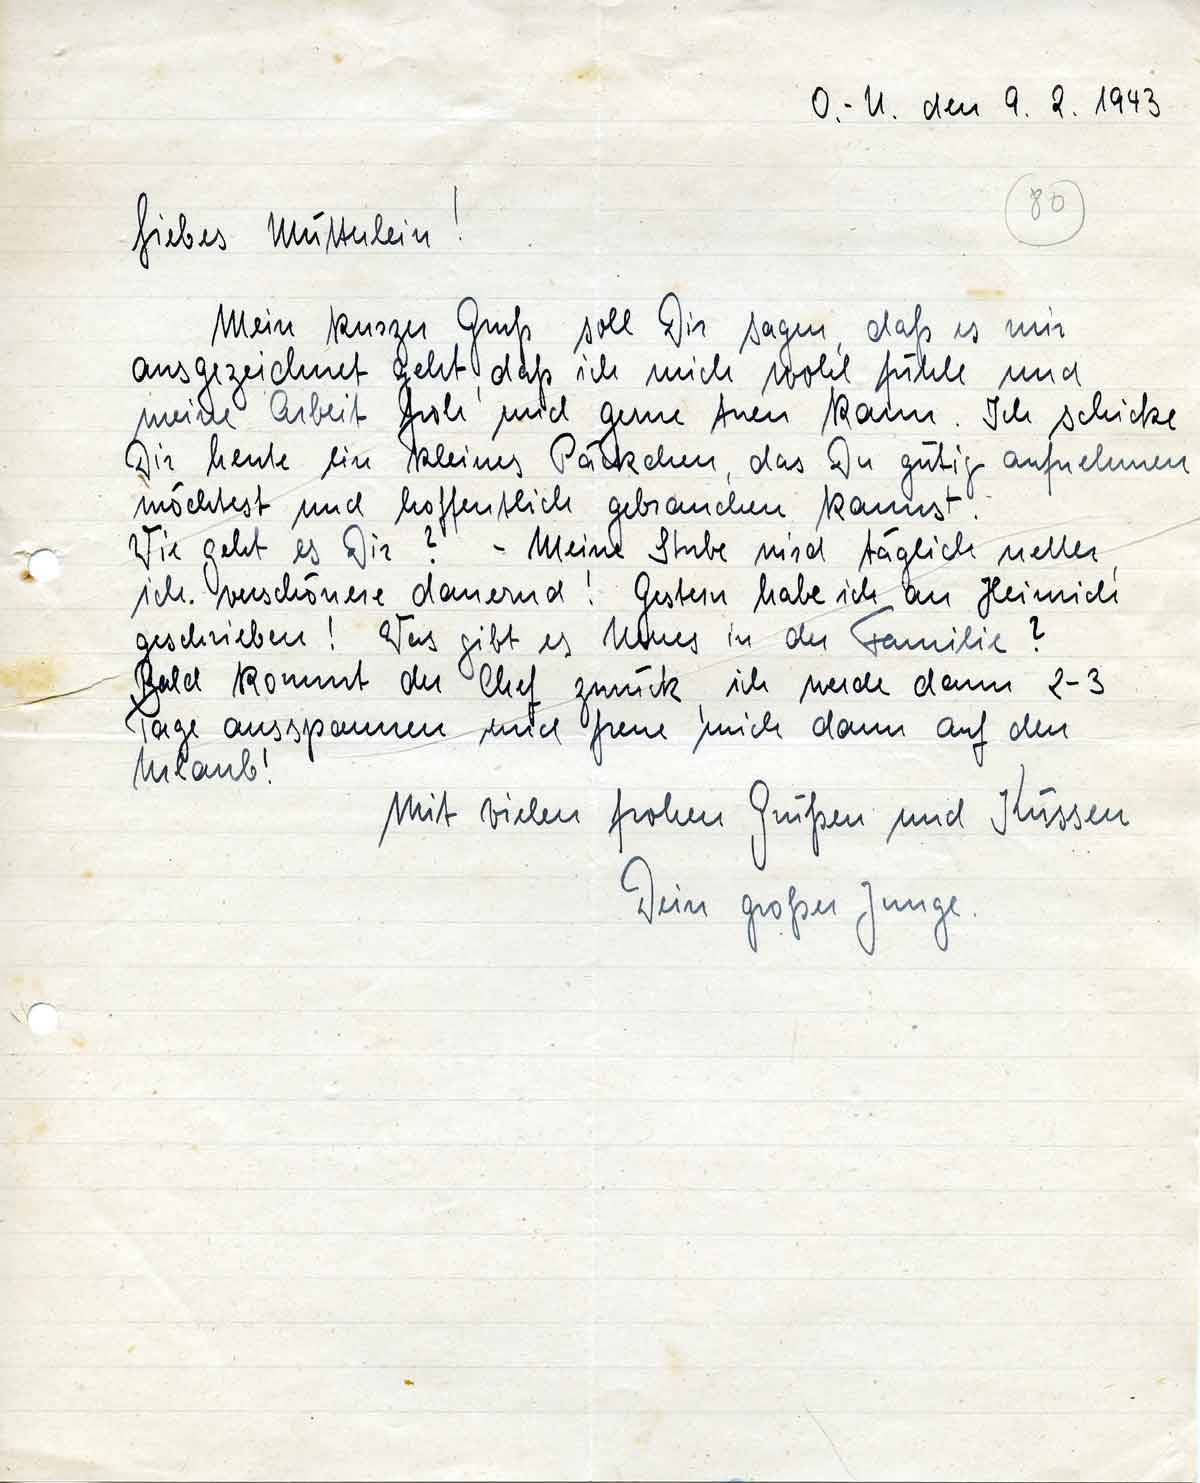 O.-U. den 9. 2. 1943
80
Liebes Mütterlein!
Mein kurzer Gruß soll Dir sagen, daß es mir
ausgezeichnet geht, daß ich mich wohl fühle und
meine Arbeit froh und gerne tuen kann. Ich schicke
Dir heute ein kleines Päckchen, das Du gütig aufnehmen
möchtest und hoffentlich gebrauchen kannst.
Wie geht es Dir? - Meine Stube wird täglich netter,
ich verschönere dauernd! Gestern habe ich an Heinrich
geschrieben! Was gibt es Neues in der Familie?
Bald kommt der Chef zurück, ich werde dann 2-3
Tage ausspannen und freue mich dann auf den
Urlaub!
Mit vielen frohen Grüßen und Küssen
Dein großer Junge.